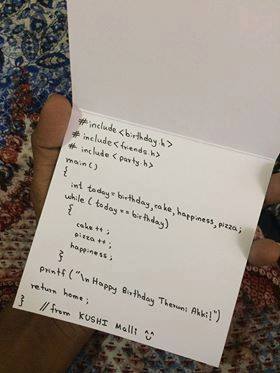 # include <birthday.h>
# include <friends.h>
# include <party.h>
main()
{
int today = birthday, cake, happiness, pizza;
while (today == birthday)
{
cake ++ ;
pizza ++ ;
happiness ;
}
printf ("\n Happy Birthday Theruni Akki!")
return home ;
}
// from KUSHI Malli